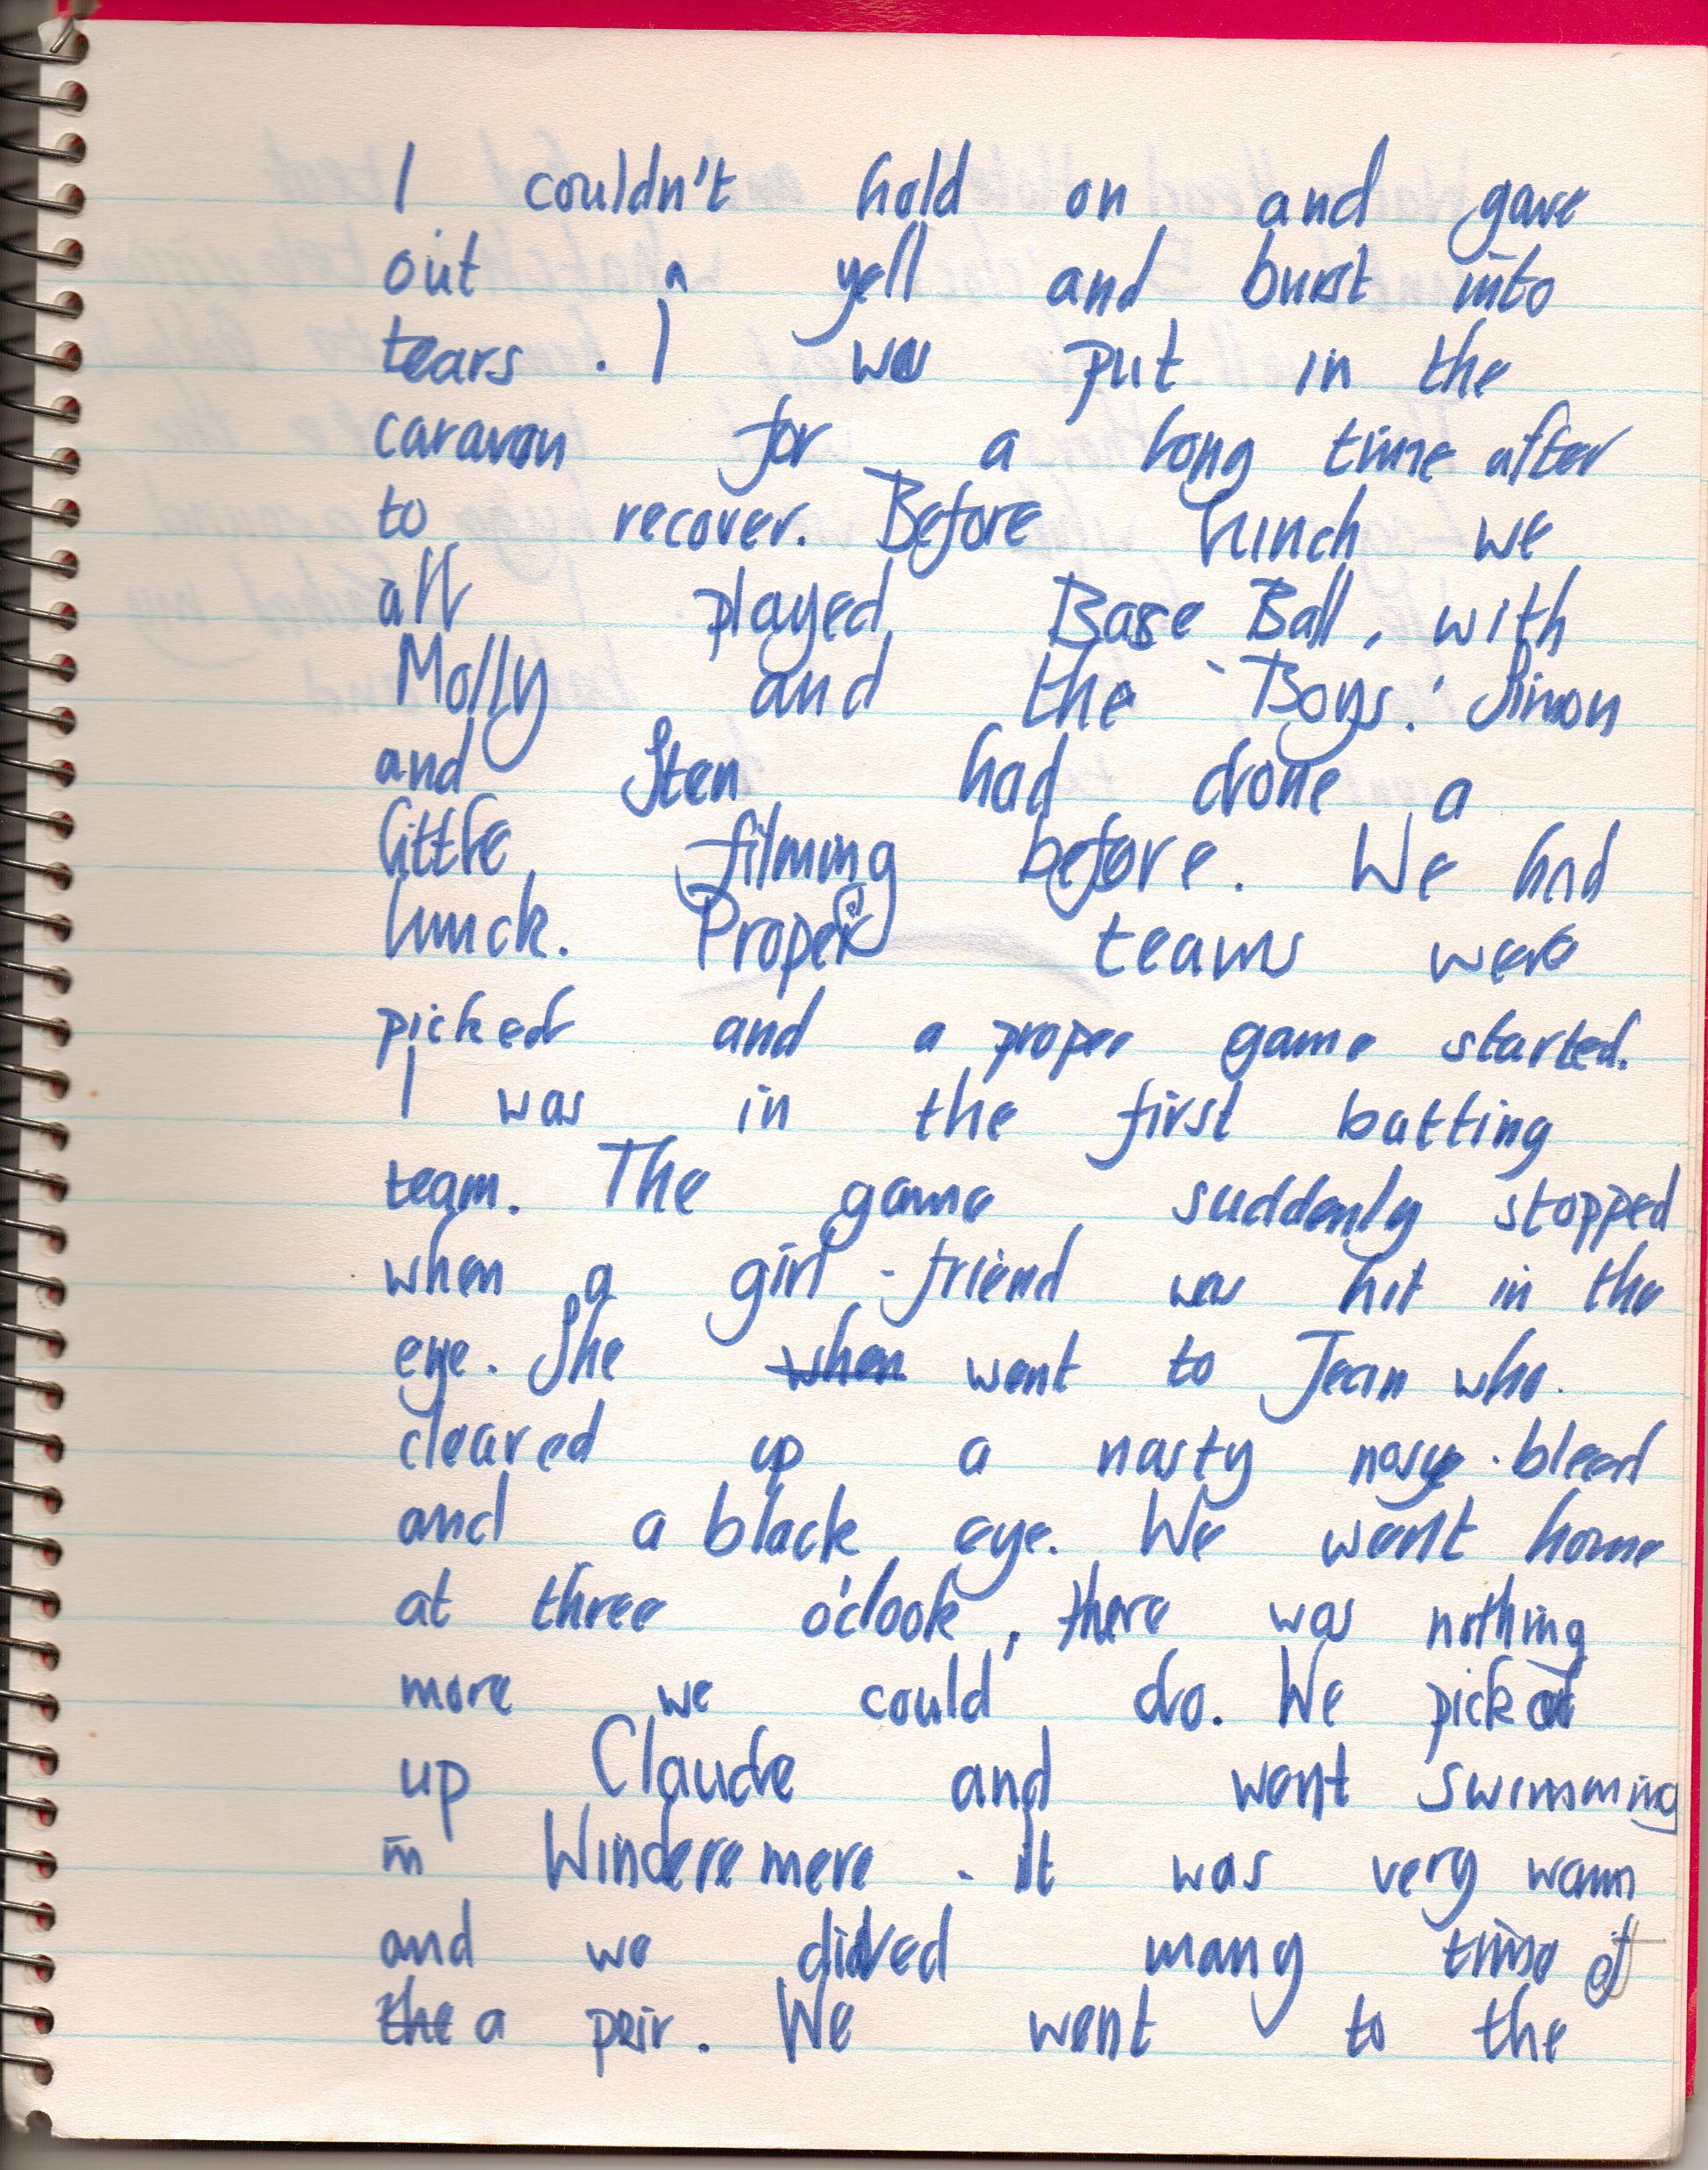 I couldn't hold on and gave
out a yell and burst into
tears. I was put in the
caravan for a long time after
to recover. Before lunch we
all played Base Ball, with
Molly and the 'Boys.' Simon
and Sten had done a
little filming before. We had
lunch. Proper teams were
picked and a proper game started.
I was in the first batting
team. The game suddenly stopped
when a girl-friend was hit in the
eye. She when went to Jean who
cleared up a nasty nose-bleed
and a black eye. We went home
at three o'clock, there was nothing
more we could do. We picked
up Claude and went swimming
in Winderemere. It was very warm
and we dived many time of
the a peir. We went to the